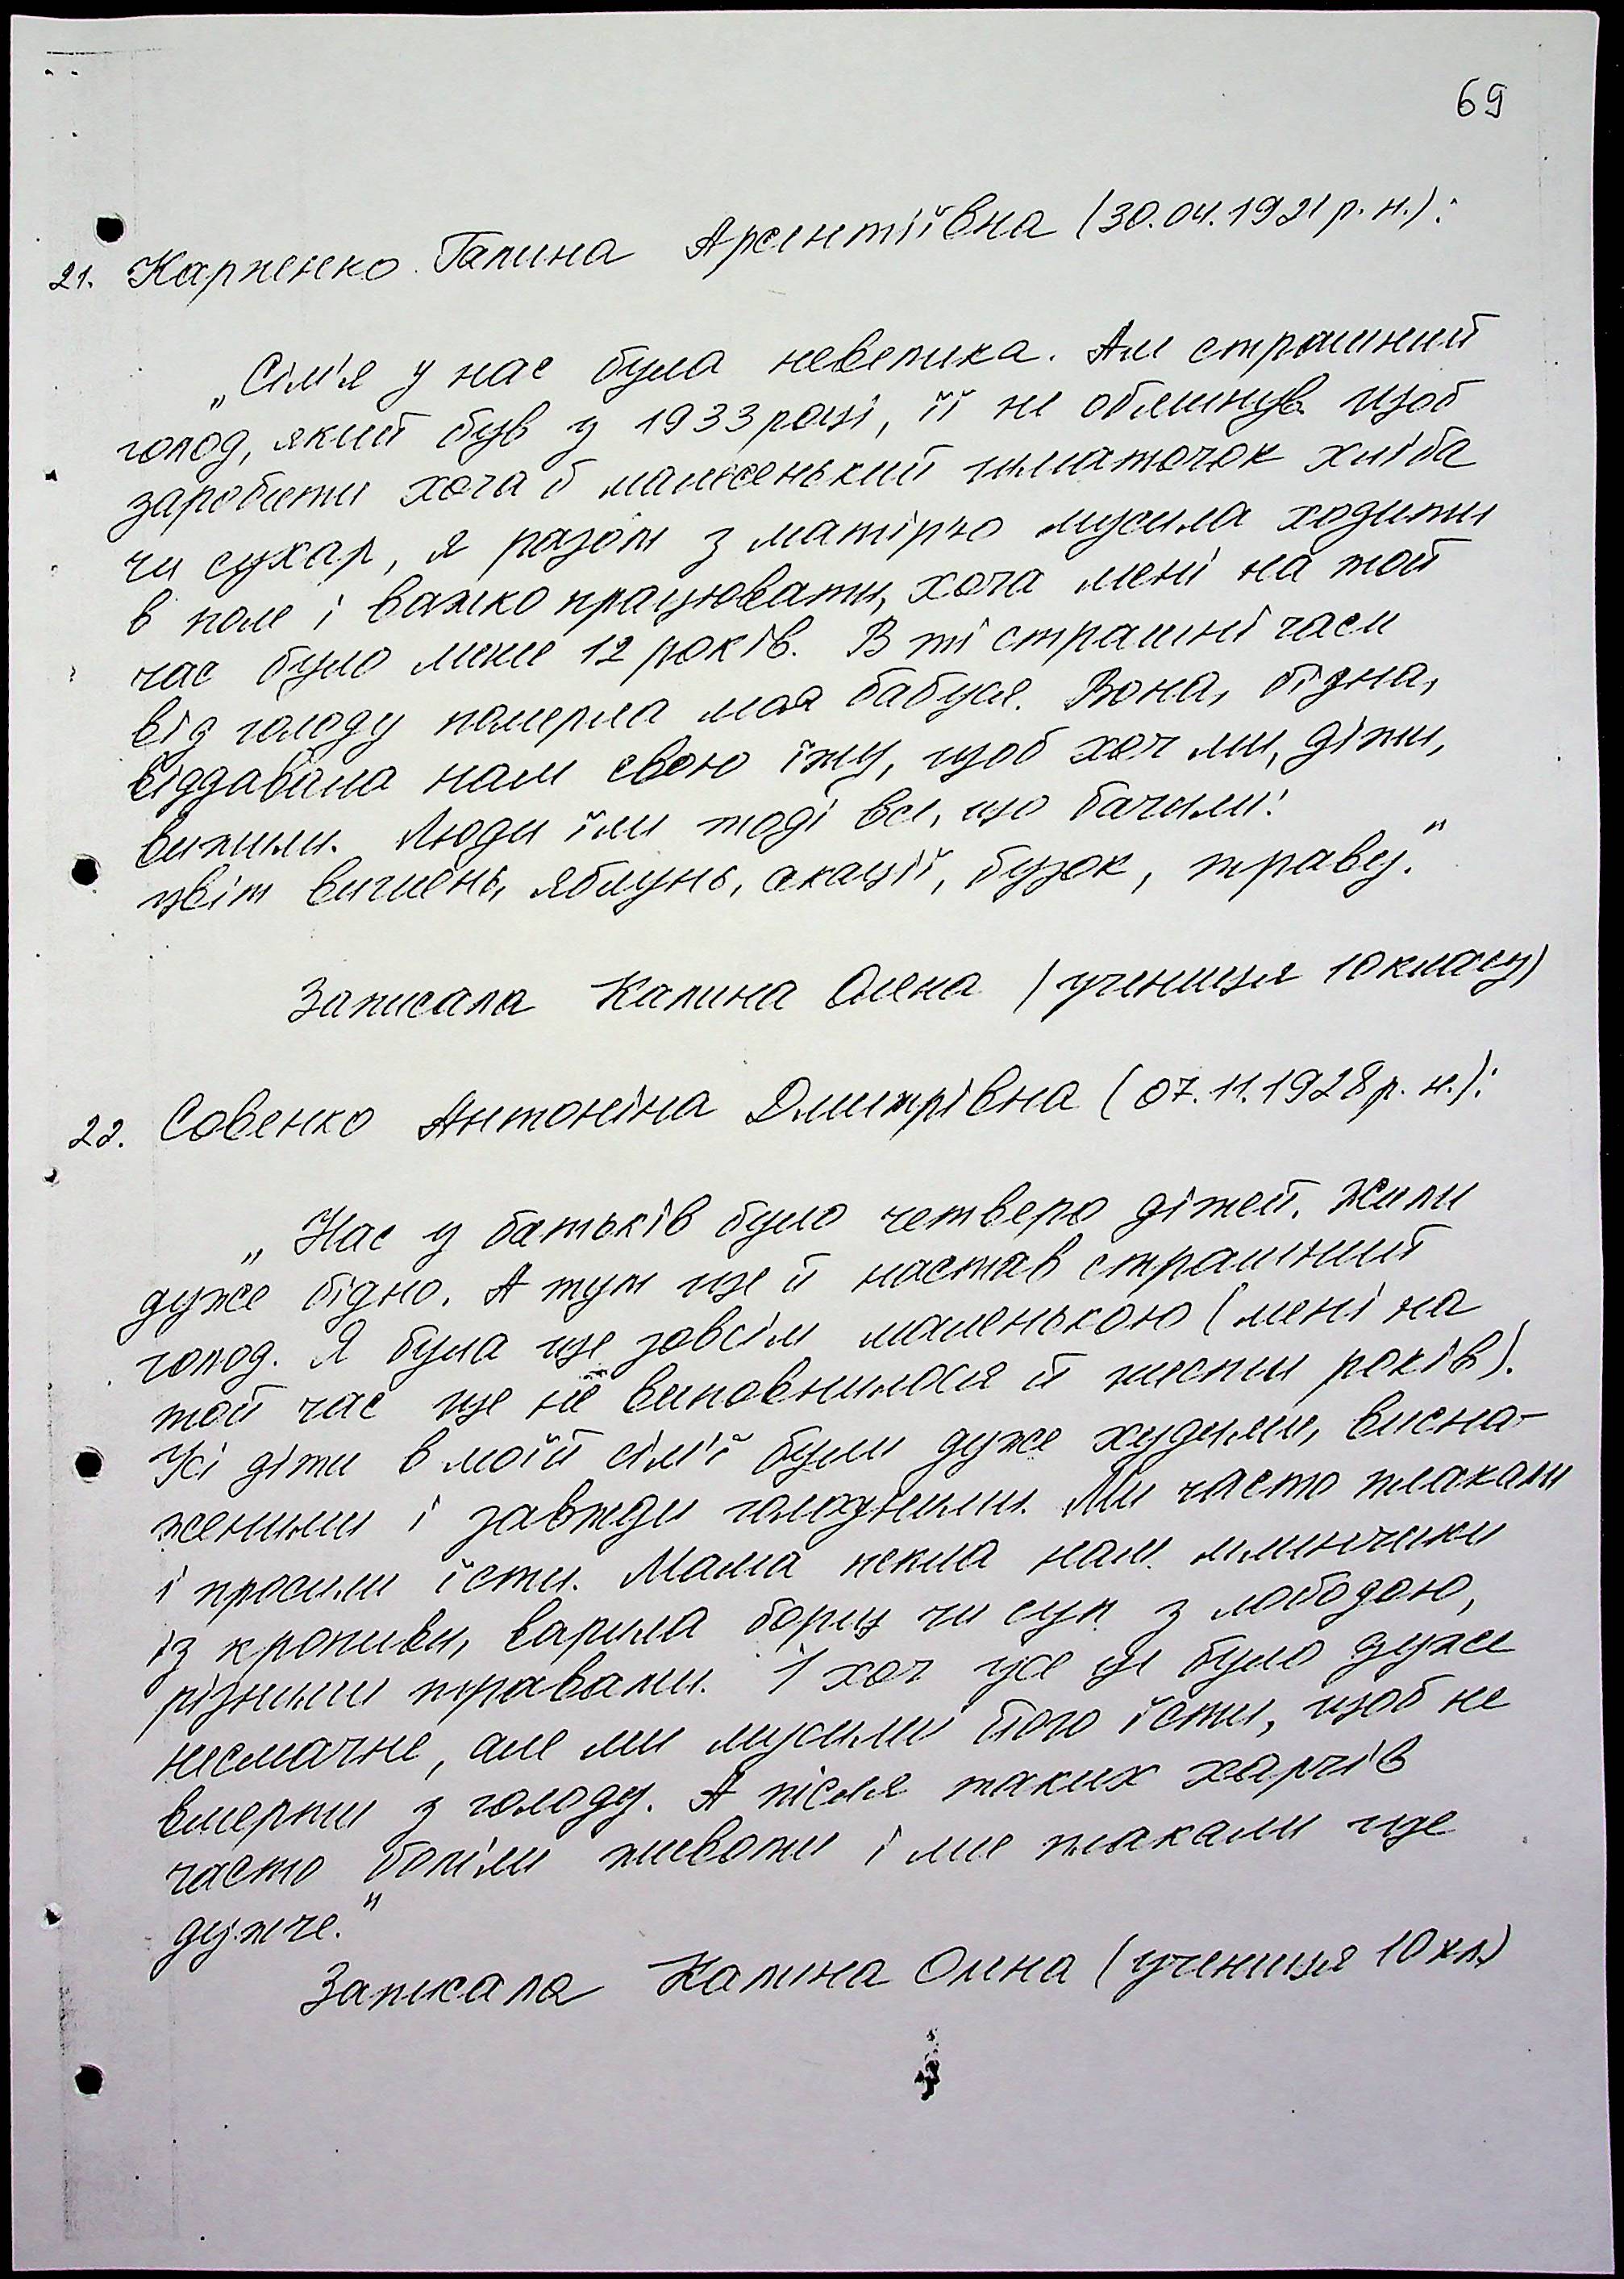 69
21. Карпенко Галина Арсентіївна (30.04.1921 р. н.):
„Сім'я у нас була невелика. Але страшний
голод, який був у 1933 році, її не обминув. Щоб
заробити хоча б малесенький шматочок хліба
чи сухар, я разом з матір'ю мусила ходити
в поле і важко працювати, хоча мені на той
час було лише 12 років. В ті страшні часи
від голоду померла моя бабуся. Вона, бідна,
віддавала нам свою їжу, щоб хоч ми, діти,
вижили. Люди їли тоді все, що бачили:
цвіт вишень, яблунь, акації, бузок, траву."
Записала Калина Олена (учениця 10 класу)
22. Совенко Антоніна Дмитрівна (07.11.1928 р. н.):
„Нас у батьків було четверо дітей. Жили
дуже бідно. А тут ще й настав страшний
голод. Я була ще зовсім маленькою (мені на
той час ще не виповнилося й шести років).
Усі діти в моїй сім'ї були дуже худими, висна-
женими і завжди голодними. Ми часто плакали
і просили їсти. Мама пекла нам млинчики
із кропиви, варила борщ чи суп з лободою,
різними травами. І хоч усе це було дуже
несмачне, але ми мусили його їсти, щоб не
вмерти з голоду. А після таких харчів
часто боліли животи і ми плакали ще
дужче."
Записала Калина Олена (учениця 10 кл.)